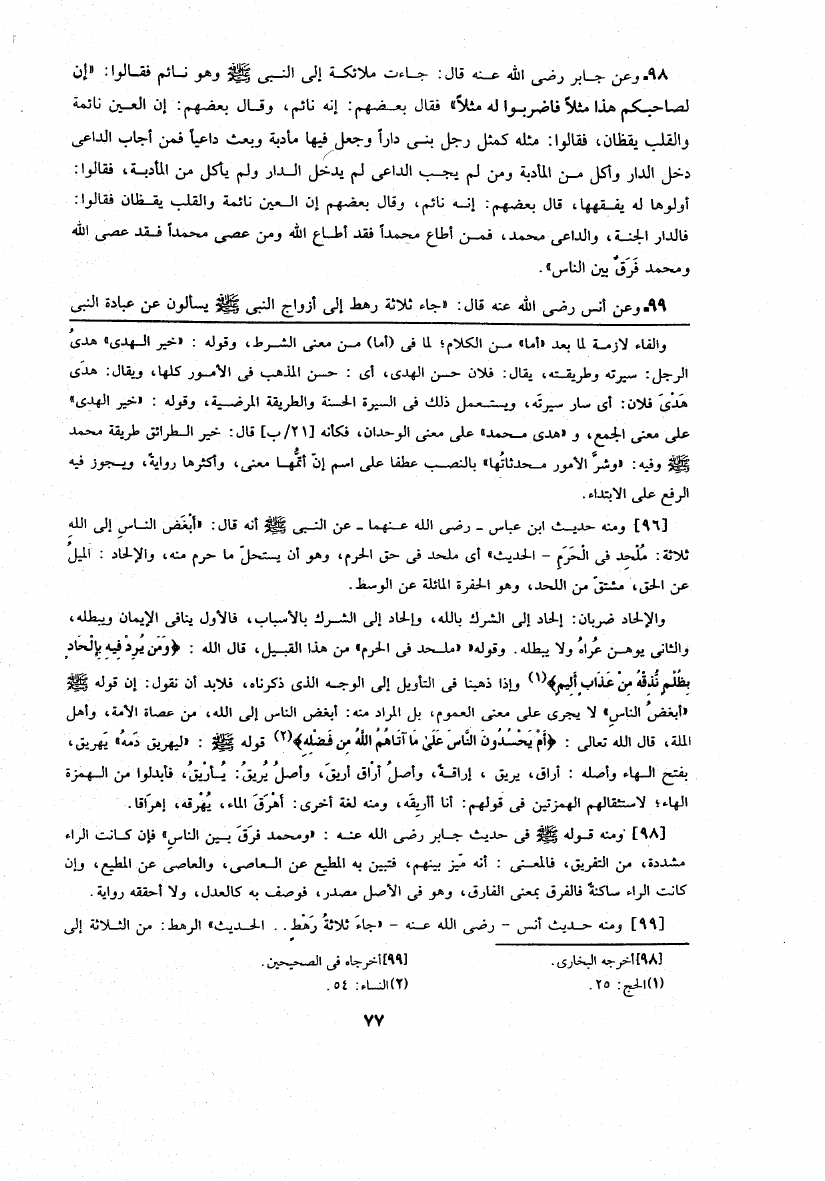 ٩٨ـ وعن جـابر رضى الله عـنه قال: جـاءت ملائكـة إلى النـبى ﷺ وهو نـائم فقـالوا: «إن
لصاحبـكم هذا مثلاً فاضربـوا له مثلاً» فقال بعـضـهم: إنه نائم، وقـال بعضـهم: إن العـين نائمة
والقلب يقظان، فقالوا: مثله كمثل رجل بنـى داراً وجعل فيها مأدبة وبعث داعياً فمن أجاب الداعى
دخل الدار وأكل مـن المأدبة ومن لم يجـب الداعى لم يدخل الـدار ولم يأكل من المأدبـة، فقالوا:
أولوها له يفـقهها، قال بعضهم: إنـه نائم، وقال بعضهم إن الـعين نائمة والقلب يقـظان فقالوا:
فالدار الجنـة، والداعى محمد، فمـن أطاع محمداً فقد أطـاع الله ومن عصى محمداً فـقد عصى الله
ومحمد فَرَقٌ بين الناس».
٩٩ـ وعن أنس رضى الله عنه قال: «جاء ثلاثة رهط إلى أزواج النبى ﷺ يسألون عن عبادة النبى
والفاء لازمـة لما بعد «أما» مـن الكلام؛ لما فى (أما) مـن معنى الشـرط، وقوله : «خير الـهدى» هدىُ
الرجل: سيرته وطريقـته، يقال: فلان حسن الهدى، أى : حسن المذهب فى الأمـور كلها، ويقال: هدَى
هَدْىَ فلان: أى سار سيرتَه، ويستـعمل ذلك فى السيرة الحسنة والطريقة المرضـية، وقوله : «خير الهدى»
على معنى الجمع، و «هدى مـحمد» على معنى الوحدان، فكأنه [٢١/ب] قال: خير الـطرائق طريقة محمد
ﷺ وفيه: «وشرَّ الأمور مـحدثاتُها» بالنصـب عطفا على اسم إنّ أتمُّهـا معنى، وأكثرها روايةً، ويـجوز فيه
الرفع على الابتداء.
[٩٦] ومنه حديـث ابن عباس ـ رضى الله عـنهما ـ عن النـبى ﷺ أنه قال: «أَبْغَض النـاس إلى الله
ثلاثة: مُلْحِد فى الْحَرَمِ – الحديث» أى ملحد فى حق الحرم، وهو أن يستحلّ ما حرم منه، والإلحاد : الميلُ
عن الحق، مشتقّ من اللحد، وهو الحفرة المائلة عن الوسط.
والإلحاد ضربان: إلحاد إلى الشرك بالله، وإلحاد إلى الشـرك بالأسباب، فالأول ينافى الإيمان ويبطله،
والثانى يوهـن عُراهُ ولا يبطله. وقوله« «ملـحد فى الحرم» من هذا القبيـل، قال الله : ﴿وَمَن يُرِدْ فِيهِ بِإِلْحَادٍ
بِظُلْمٍ نُذِقْهُ مِنْ عَذَابٍ أَلِيمٍ﴾(١) وإذا ذهبنا فى التأويل إلى الوجـه الذى ذكرناه، فلابد أن نقول: إن قوله ﷺ
«أبغضُ الناس» لا يجرى على معنى العموم، بل المراد منه: أبغض الناس إلى الله، من عصاة الأمة، وأهل
الملة، قال الله تعالى : ﴿أَمْ يَحْسُدُونَ النَّاسَ عَلَىٰ مَا آتَاهُمُ اللَّهُ مِن فَضْلِهِ﴾(٢) قوله ﷺ : «ليهريق دَمهُ» يَهريق،
بفتح الـهاء وأصله : أراق، يريق ، إراقـةً، وأصلُ أراق أريقَ، وأصلُ يُريقُ: يُـأريِقُ، فأبدلوا من الـهمزة
الهاء؛ لاستثقالهم الهمزتين فى قولهم: أنا أأريقَه، ومنه لغة أخرى: أهْرَقَ الماء، يُهْرقه، إهرَاقا.
[٩٨] ومنه قـوله ﷺ فى حديث جـابر رضى الله عنـه : «ومحمد فرَقَ بـين الناس» فإن كـانت الراء
مشددة، من التفريق، فالمعـنى : أنه ميّز بينهم، فتبين به المطيع عن الـعاصى، والعاصى عن المطيع، وإن
كانت الراء ساكنةً فالفرق بمعنى الفارق، وهو فى الأصل مصدر، فوصف به كالعدل، ولا أحققه رواية.
[٩٩] ومنه حـديث أنس – رضى الله عـنه – «جاءَ ثلاثةُ رَهْطٍ.. الحـديث» الرهط: من الثـلاثة إلى
[٩٨]أخرجه البخارى.
[٩٩]أخرجاه فى الصحيحين.
(١)الحج: ٢٥.
(٢)النساء: ٥٤.
٧٧